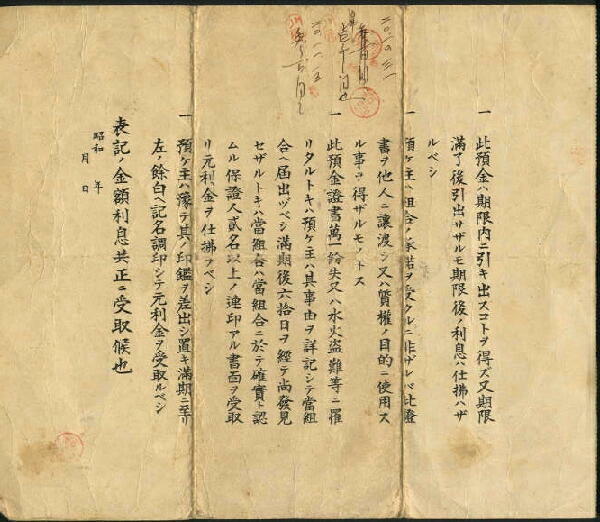 一 此預金ハ期限内ニ引キ出スコトヲ得ズ又期限
滿了後引出サザルモ期限後ノ利息ハ仕拂ハザ
ルベシ
一 預ケ主ハ組合ノ承諾ヲ受クルニ非ザレバ此證
書ヲ他人ニ讓渡シ又ハ質權ノ目的ニ使用ス
ル事ヲ得ザルモノトス
一 此預金證書萬一紛失又ハ水火盜難等ニ罹
リタルトキハ預ケ主ハ其事由ヲ詳記シテ當組
合ヘ届出ヅベシ滿期後六拾日ヲ經テ尚發見
セザルトキハ當組合ハ當組合ニ於テ確實ト認
ムル保證人貳名以上ノ連印アル書面ヲ受取
リ元利金ヲ仕拂フベシ
一 預ケ主ハ豫テ其ノ印鑑ヲ差出シ置キ滿期ニ至リ
左ノ餘白ヘ記名調印シテ元利金ヲ受取ルベシ
表記ノ金額利息共正ニ受取候也
昭和 年
月 日